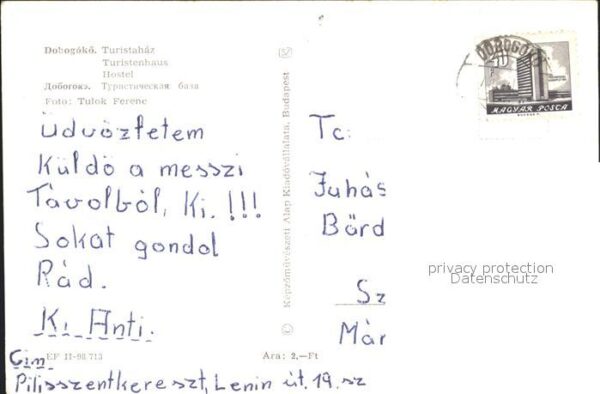 Dobogókő. Turistaház
Turistenhaus
Hostel
Добогокэ. Туристическая база
Foto: Tulok Ferenc
Üdvözletem
Küldö a messzi
Távolból, Ki. !!!
Sokat gondol
Rád.
K. Anti.
Cím
EF 11-98 713
Pilisszentkereszt, Lenin út. 19. sz
Képzőművészeti Alap Kiadóvállalata, Budapest
Ára: 2,—Ft
DOBOGÓKŐ
MAGYAR POSTA
Tc:
Juhás
Börd
Sz
Már
privacy protection
Datenschutz